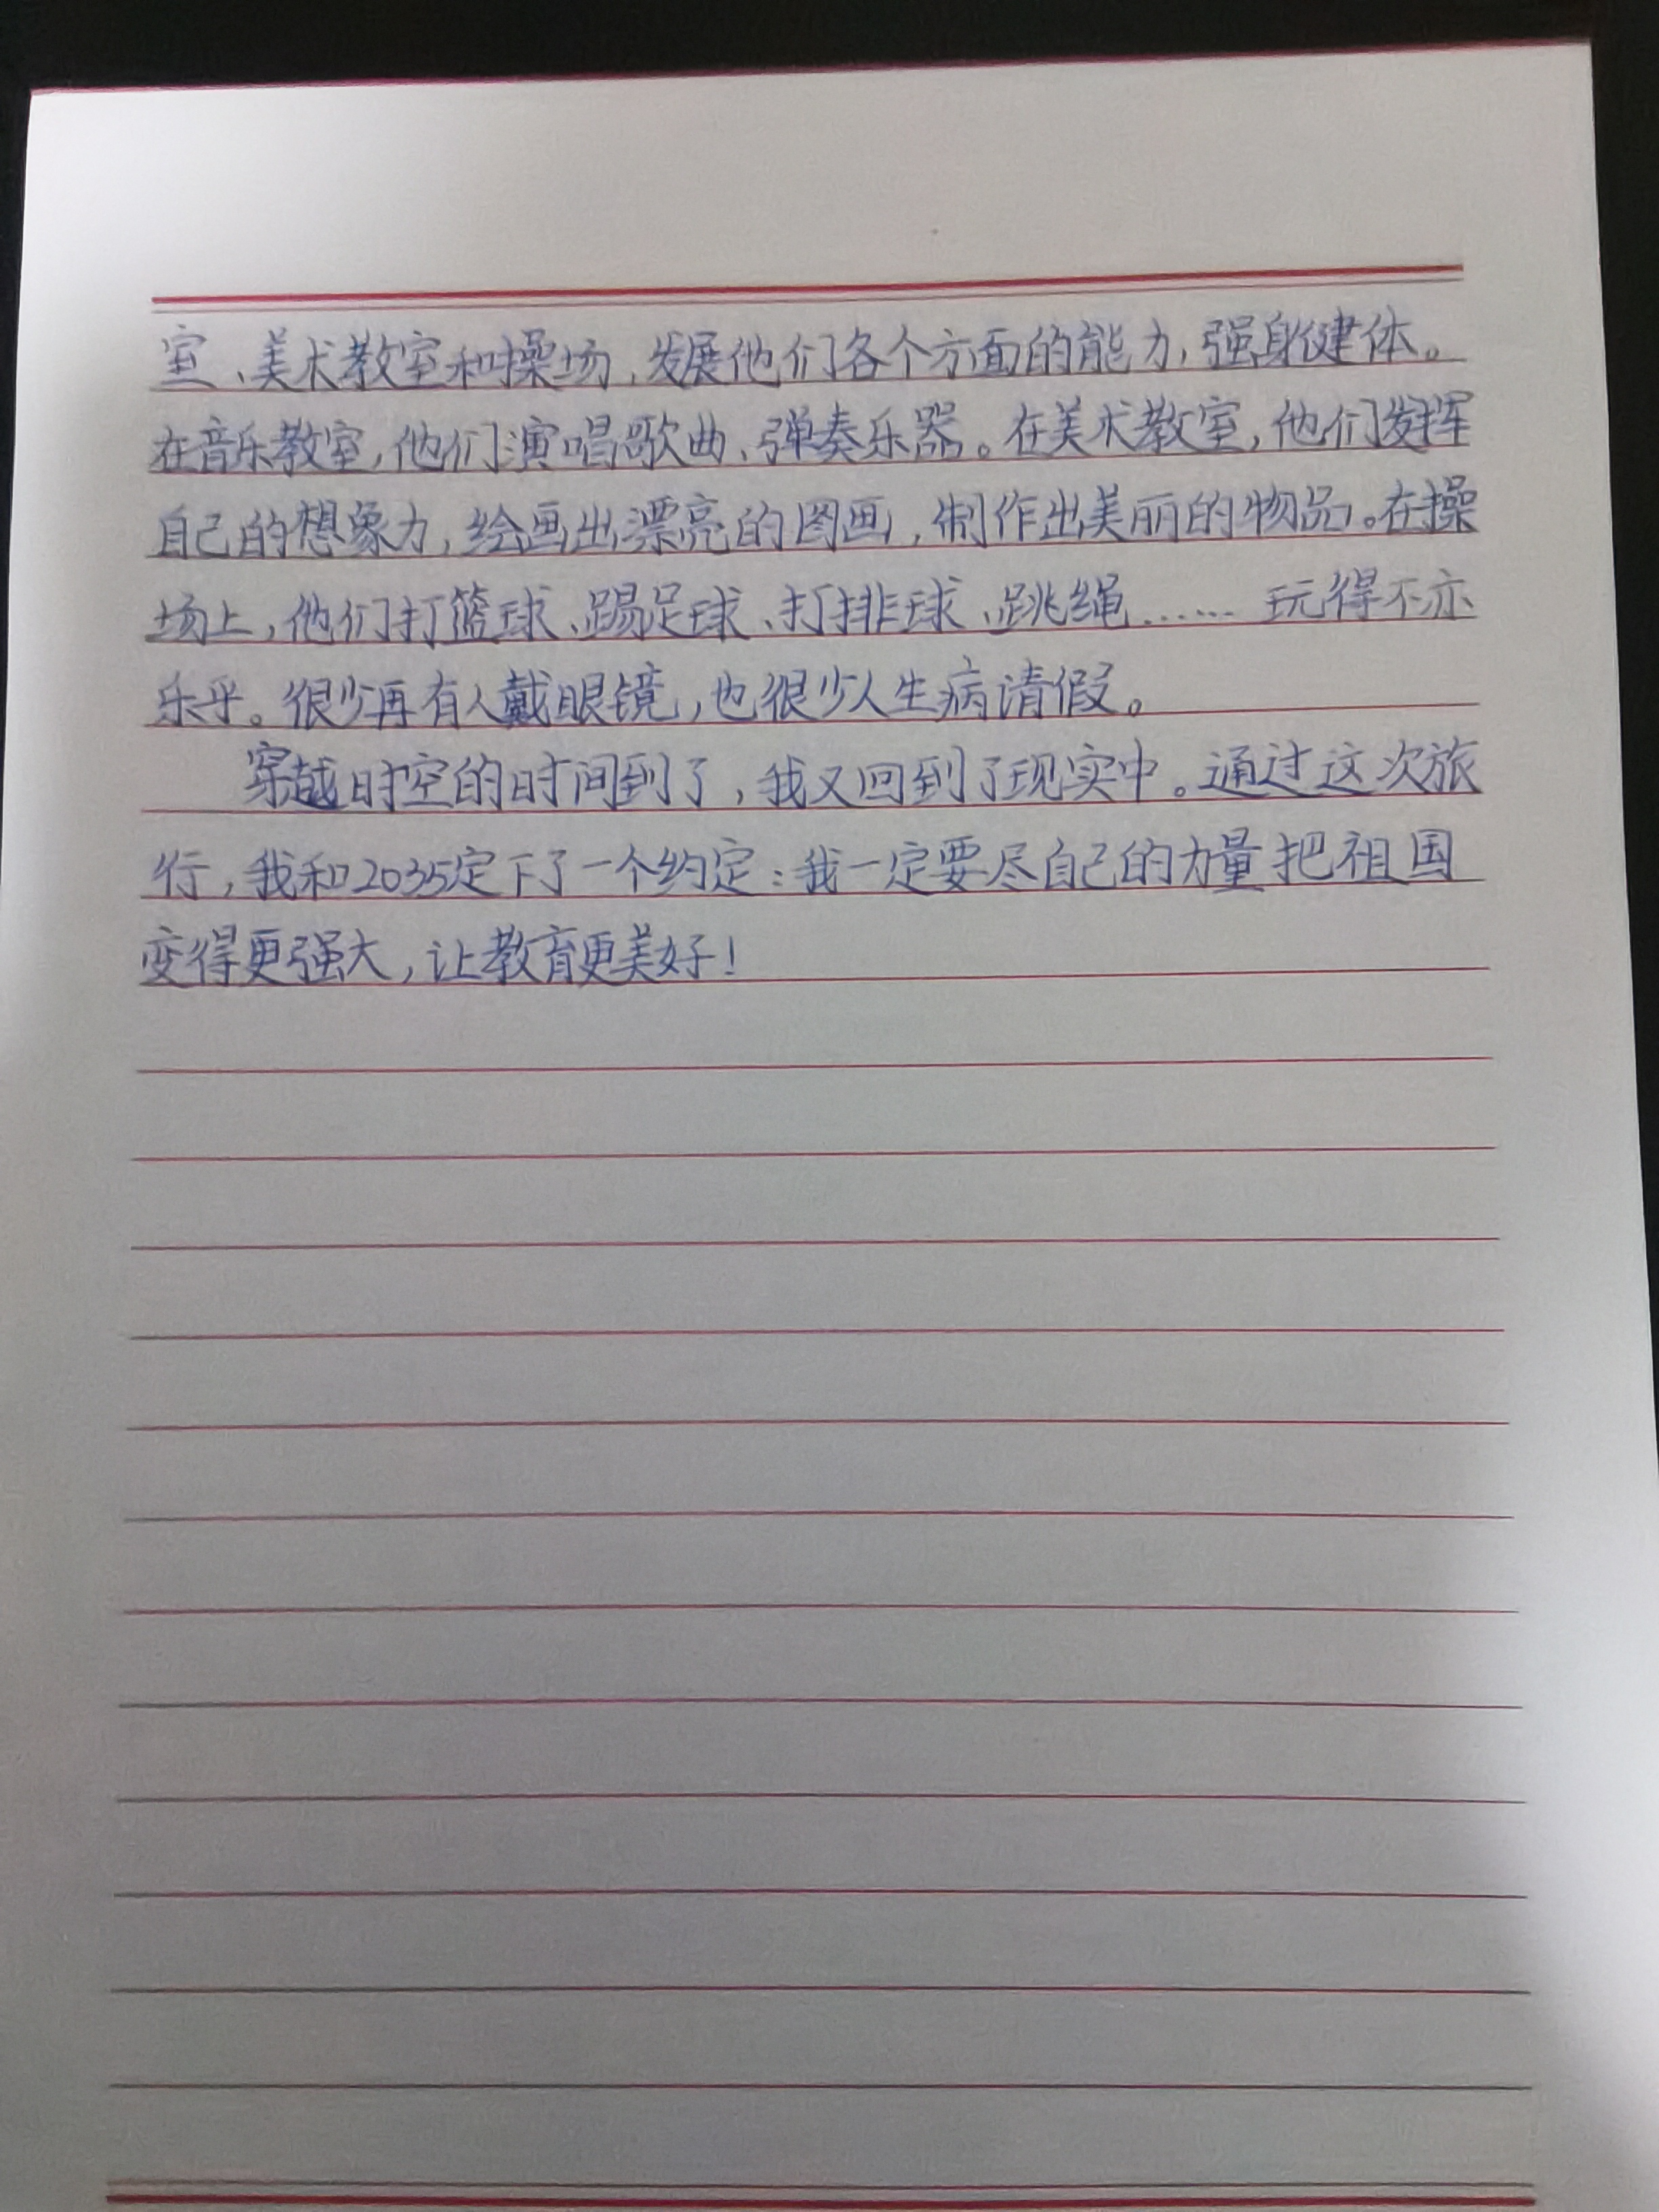 室、美术教室和操场，发展他们各个方面的能力，强身健体。
在音乐教室，他们演唱歌曲、弹奏乐器。在美术教室，他们发挥
自己的想象力，绘画出漂亮的图画，制作出美丽的物品。在操
场上，他们打篮球、踢足球、打排球、跳绳……玩得不亦
乐乎。很少再有人戴眼镜，也很少人生病请假。
穿越时空的时间到了，我又回到了现实中。通过这次旅
行，我和2035定下了一个约定：我一定要尽自己的力量把祖国
变得更强大，让教育更美好！